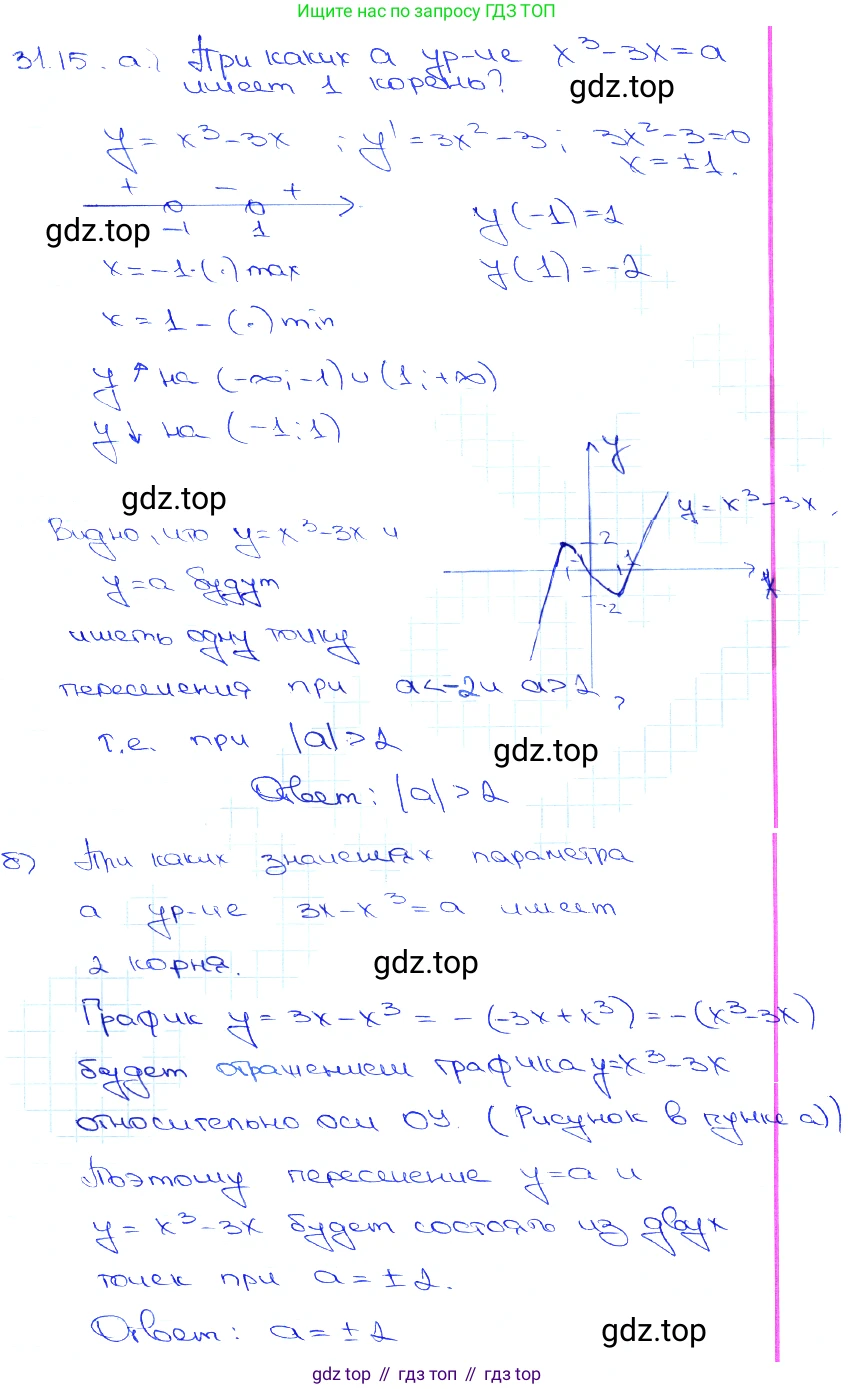 Ищите нас по запросу ГДЗ ТОП
31.15. а) При каких а ур-ие x³-3x=a
имеет 1 корень?
gdz.top
y = x³-3x ; y' = 3x²-3; 3x²-3=0
x=±1.
+ - +
-1 1
gdz.top
y(-1)=2
x=-1-(.) max
y(1)=-2
x = 1 - (.) min
y↑ на (-∞; -1) ∪ (1; +∞)
y↓ на (-1; 1)
gdz.top
y
y = x³-3x
2
-1
1
-2
x
Видно, что y=x³-3x и
y=a будут
иметь одну точку
пересечения при a<-2 и a>2,
т.е. при |a|>2
gdz.top
Ответ: |a|>2
б) При каких значениях параметра
а ур-ие 3x-x³=a имеет
2 корня.
gdz.top
График y = 3x-x³ = -(-3x+x³) = -(x³-3x)
будет отражением графика y=x³-3x
относительно оси ОУ. (Рисунок в пункте а))
Поэтому пересечение y=a и
y= x³-3x будет состоять из двух
точек при a=±2.
Ответ: a=±2
gdz.top
gdz top // гдз топ // gdz top